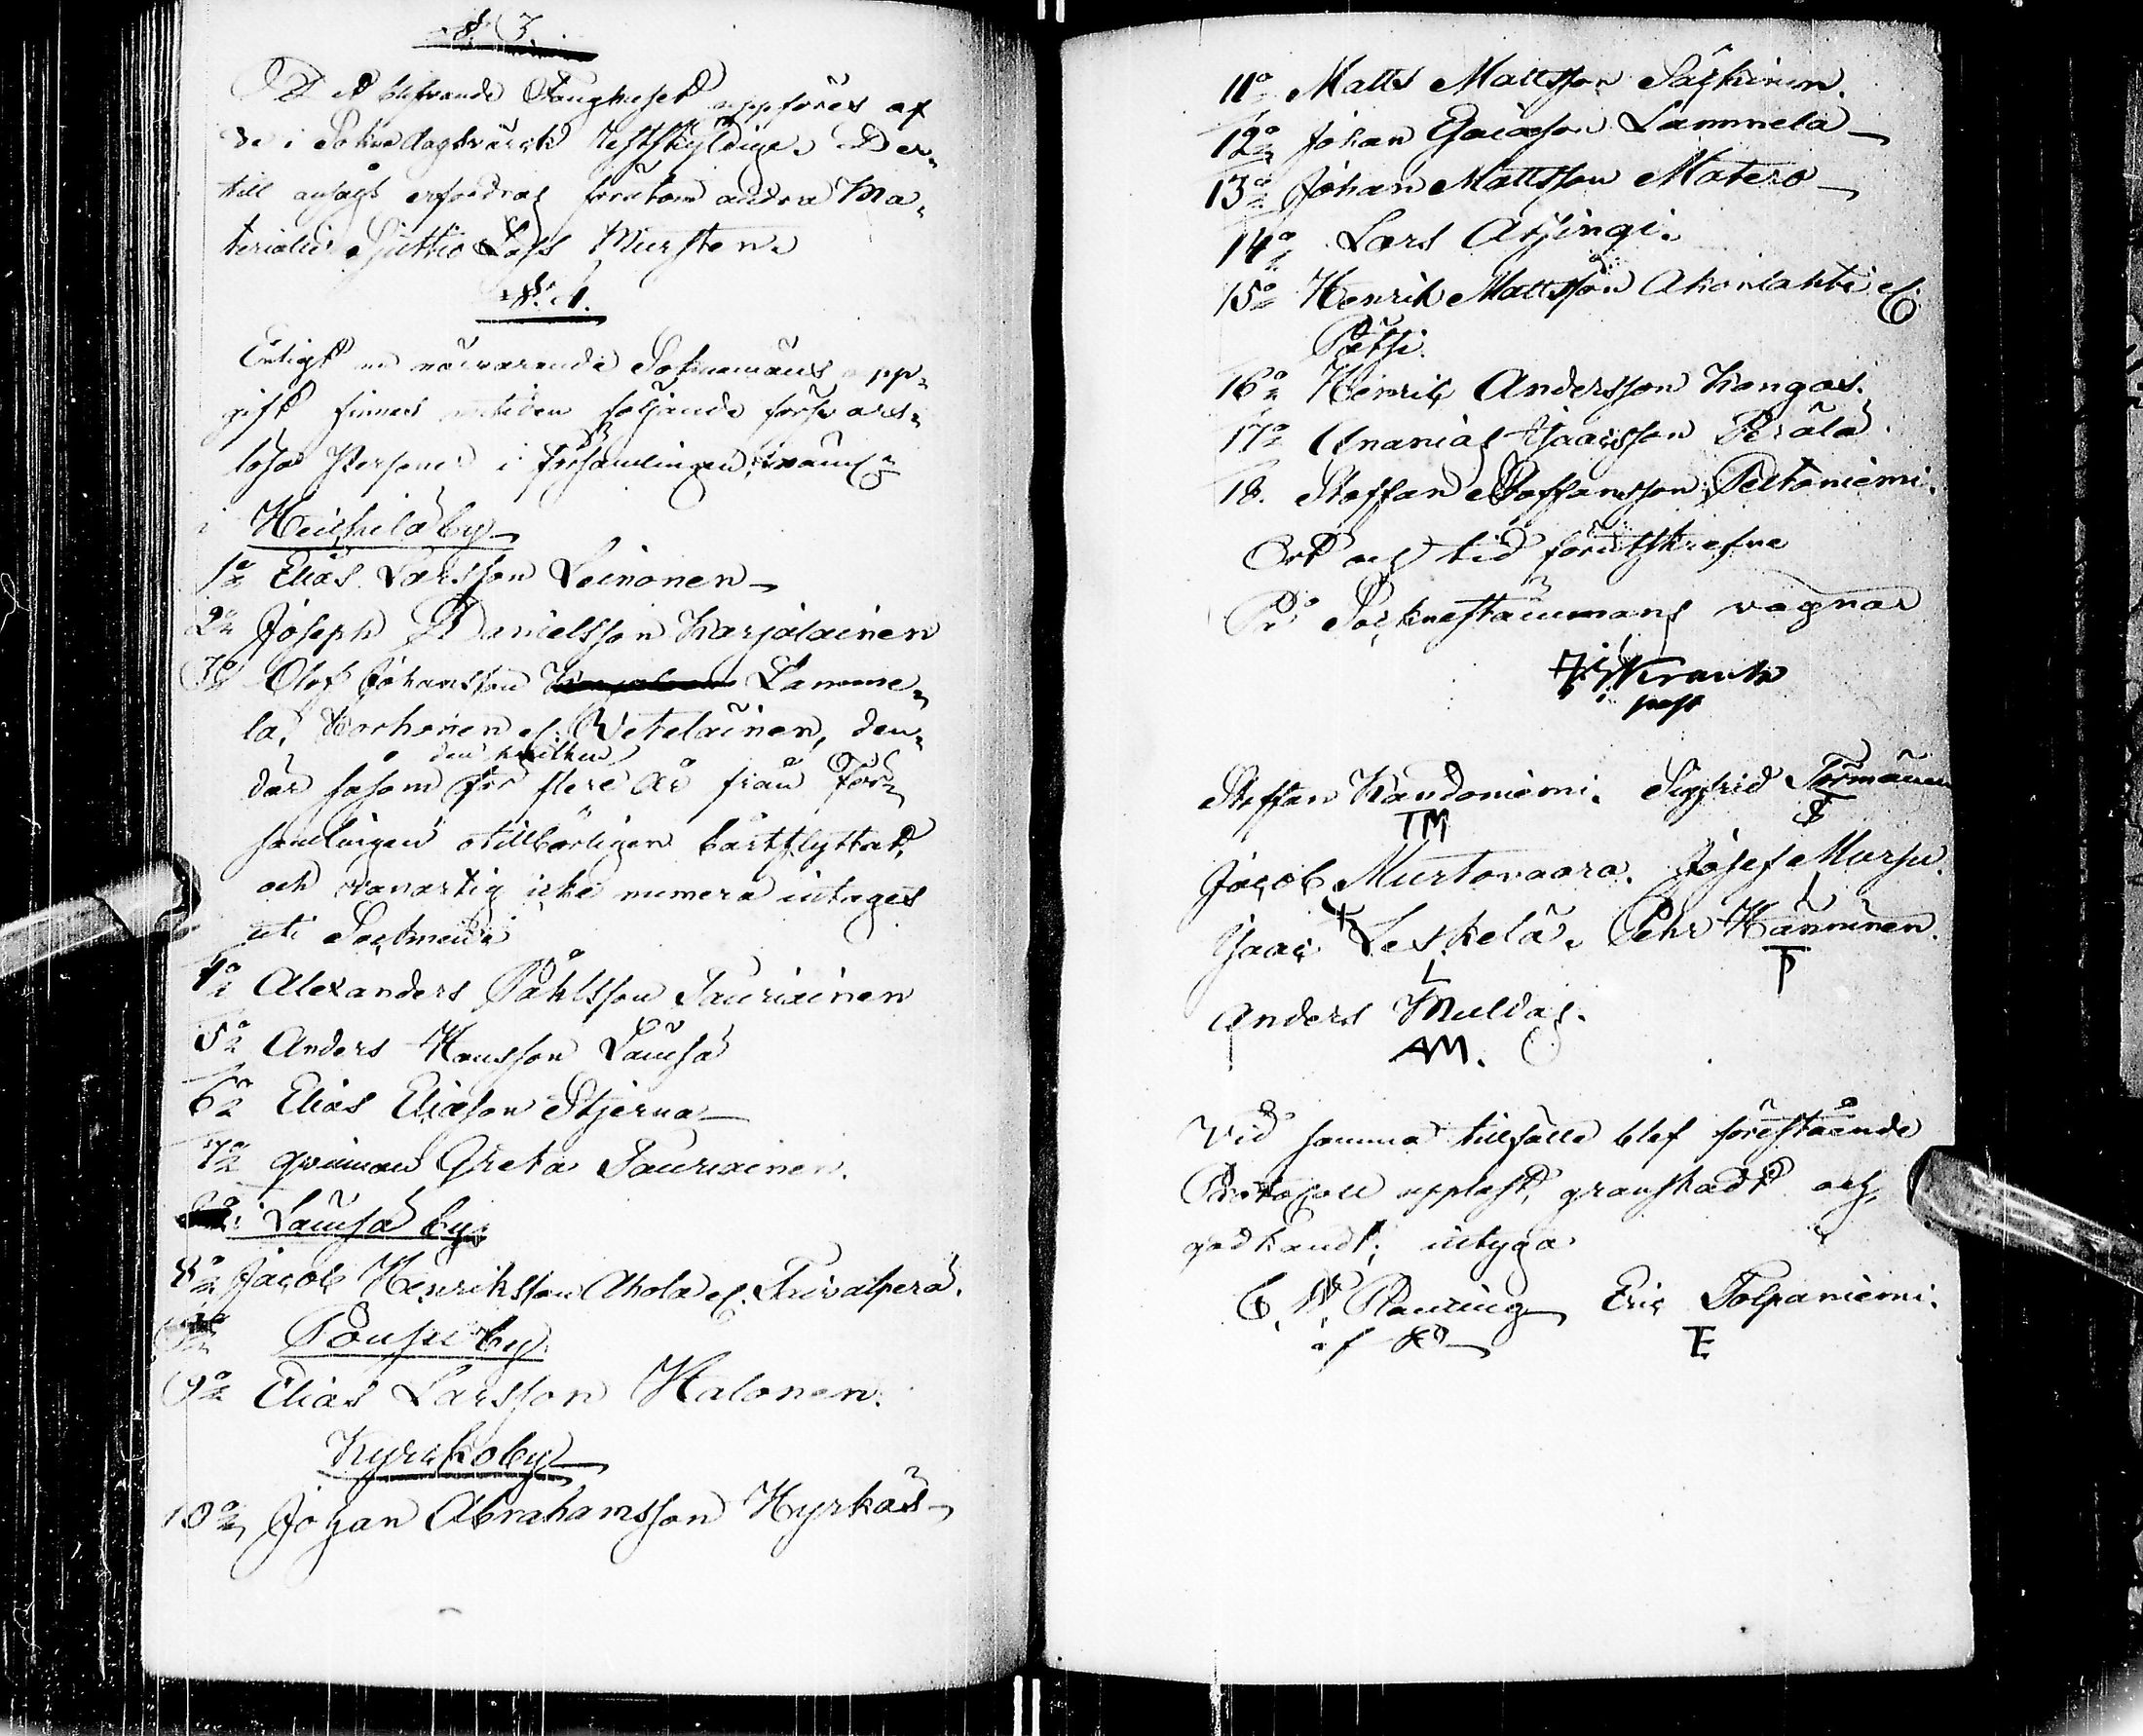 § 3.
Det blifvande Fånghuset uppföres af
de i Sokne Dagsvärck restskyldige. Der-
till ansågs erfordras förutom andra Ma-
terialier Sjuttio Lass Mursten.
§. 4.
Enligt nu närvarande Soknemäns upp-
gift finnes följande försvars-
lösa Personer i Församlingen, nämC
i Heikkilä by
1o Elias Larsson Leinonen
2o Joseph Danielsson Karjalainen
3o Olof Johansson Lamme-
la, Korhonen el. Weteläinen, den-
den hvilken
där såsom för flere år från För-
samlingen otillbörligen bårtflyttat,
och vanartig icke numera intages
uti Socknen
4o Alexanders Påhlsson Tauriainen
5o Anders Hansson Lämsä
6o Elias Eliasson Stjerna
7o qvinnan Greta Tauriainen.
i Lämsä by
8o Jacob Henriksson Ahola el.
Pousu by
9o Elias Larsson Halonen.
Kyrckoby
10o Johan Abrahamsson Hyrkäs
11o Matts Mattsson Säkkinen.
12o Johan Isacsson Lammela
13o Johan Mattsson Matero
14o Lars Atzingi.
15o Henrik Mattsson Akonlahti el.
Pätsi.
16o Henric Andersson Kangas.
17o Ananias Isacsson Perälä
18. Staffan Staffansson Peltoniemi.
Ort och tid förutskrefne
På Socknestämmans vägnar
Krank
Steffan Kandoniemi. Sigfrid Törmänen
TM
Jacob Murtovaara. Josef Mursu.
Isac Leskelä. Pehr Hänninen.
L
Anders Muldas.
AM.
Vid samma tillfälle blef förestående
Protocoll uppläst, granskadt och
godkändt; intyga
C. W. Planting Eric Tolpaniemi.